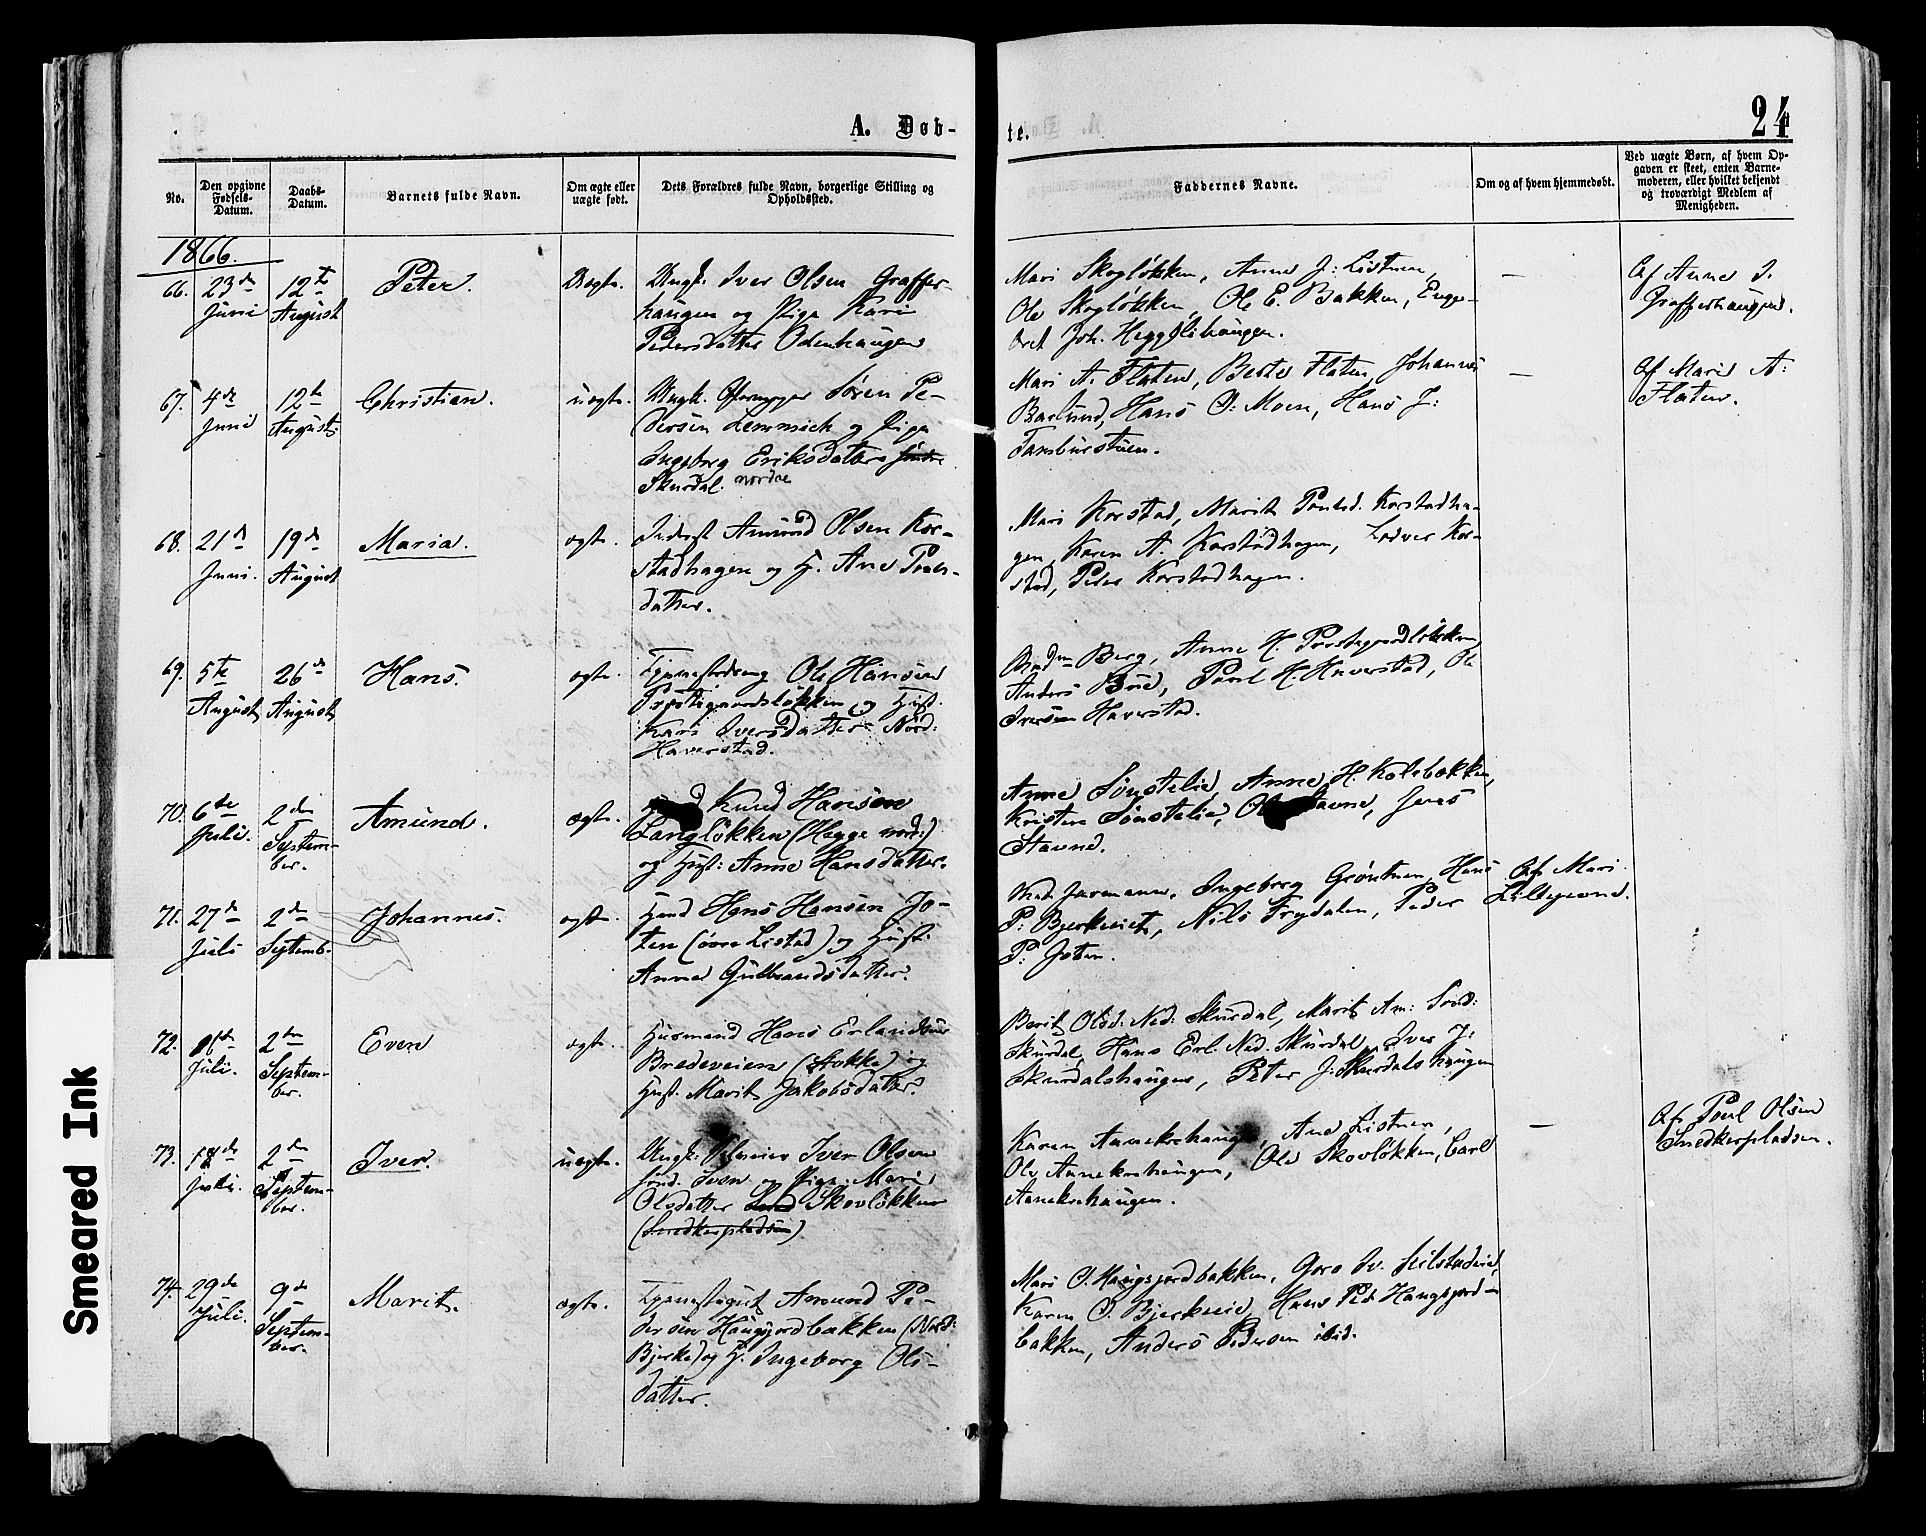 A. Døb-
te.
24
No.
Den opgivne Fødsels-Datum.
Daabs-Datum.
Barnets fulde Navn.
Om ægte eller uægte født.
Dets Forældres fulde Navn, borgerlige Stilling og Opholdssted.
Faddernes Navne.
Om og af hvem hjemmedøbt.
Ved uægte Børn, af hvem Op-
gaven er skeet, enten Barne-
moderen, eller hvilket bekjendt
og troværdigt Medlem af
Menigheden.
1866.
66. 23de Juni
12te August
Peter.
Uægte.
Ungk. Iver Olsen Graffer-
haugen og Pige Kari
Pedersdatter Odenhaugen
Mari Skogløkken, Anne J: Listuen,
Ole Skogløkken, Ole E. Bakken, Enge-
bret Joh. Heggelihaugen.
—
Af Anne I.
Grafferhaugen.
67. 4de Juni
12te August
Christian.
uægte.
Ungk. Søren Pe-
dersen Lemmich og Pige
Ingeborg Eriksdatter søndre
Skurdal. nordre
Mari A. Flaten, Berte Flaten, Johannes
Barlund, Hans O: Moen, Hans J:
Tamburstuen.
—
Af Mari A:
Flaten.
68. 21de Juni.
19de August
Maria.
ægte.
Inderst Amund Olsen Kor-
stadhagen og H. Ane Poul-
datter.
Mari Korstad, Marit Poulsd. Korstadha-
gen, Karen A. Korstadhagen, Lodver Kor-
stad, Peder Korstadhagen.
69. 5te August
26de August
Hans.
ægte.
Ole Hansen
Præstegaardsløkken og Hust.
Kari Iversdatter Nord:
Haverstad.
Berg, Anne H. Præstegaardløkken,
Anders Bue, Poul H. Haverstad, Ole
Iversen Haverstad.
70. 6te Juli.
2den September.
Amund.
ægte.
Knud Hansen
Langløkken (Hegge nord:)
og Hust: Anne Hansdatter.
Anne Sønstelie, Anne H. Kolobakken,
Kristen Sønstelie, Ole Stavne, Jens
Stavne.
71. 27de Juli
2den Septemb.
Johannes.
ægte.
Hmd Hans Hansen Jo-
ten (øvre Listad) og Hust.
Anne Gulbrandsdatter.
Ingeborg Grøntuen, Hans
P: Bjerkeiet, Nils Frydalen, Peder
P: Joten.
Af Mari
Lillegeond.
72. Juli.
2den September.
Even
ægte.
Husmand Hans Erlandsen
Bredeveien (Stokke) og
Hust. Marit Jakobsdatter.
Berit Olsd: Ned: Skurdal, Marit Am: Sønd:
Skurdal, Hans Erl. Ned. Skurdal, Iver J:
Skurdalshaugen, Peter J: Skurdalshaugen
73. 18de Juli.
2den September.
Iver.
uægte.
Ungk. Iver Olsen
sønd. og Pige Mari
Olsdatter Skovløkken
(Snedkerpladsen).
Karen Annekrehaugen, Ane Listuen,
Ole Annekrehaugen, Ole Skovløkken, Carl
Annekrehaugen.
—
Af Poul Olsen
Snedkerpladsen.
74. 29de Juli.
9de September.
Marit.
ægte.
Amund Pe-
dersen Haugsjordbakken (Nord:
Bjerke) og H. Ingeborg Ols-
datter.
Mari O. Haugsjordbakken, Goro Iv.
Karen O. Bjerkeeie, Hans Ped Haugsjord-
bakken, Anders Pedersen ibid.
Smeared Ink